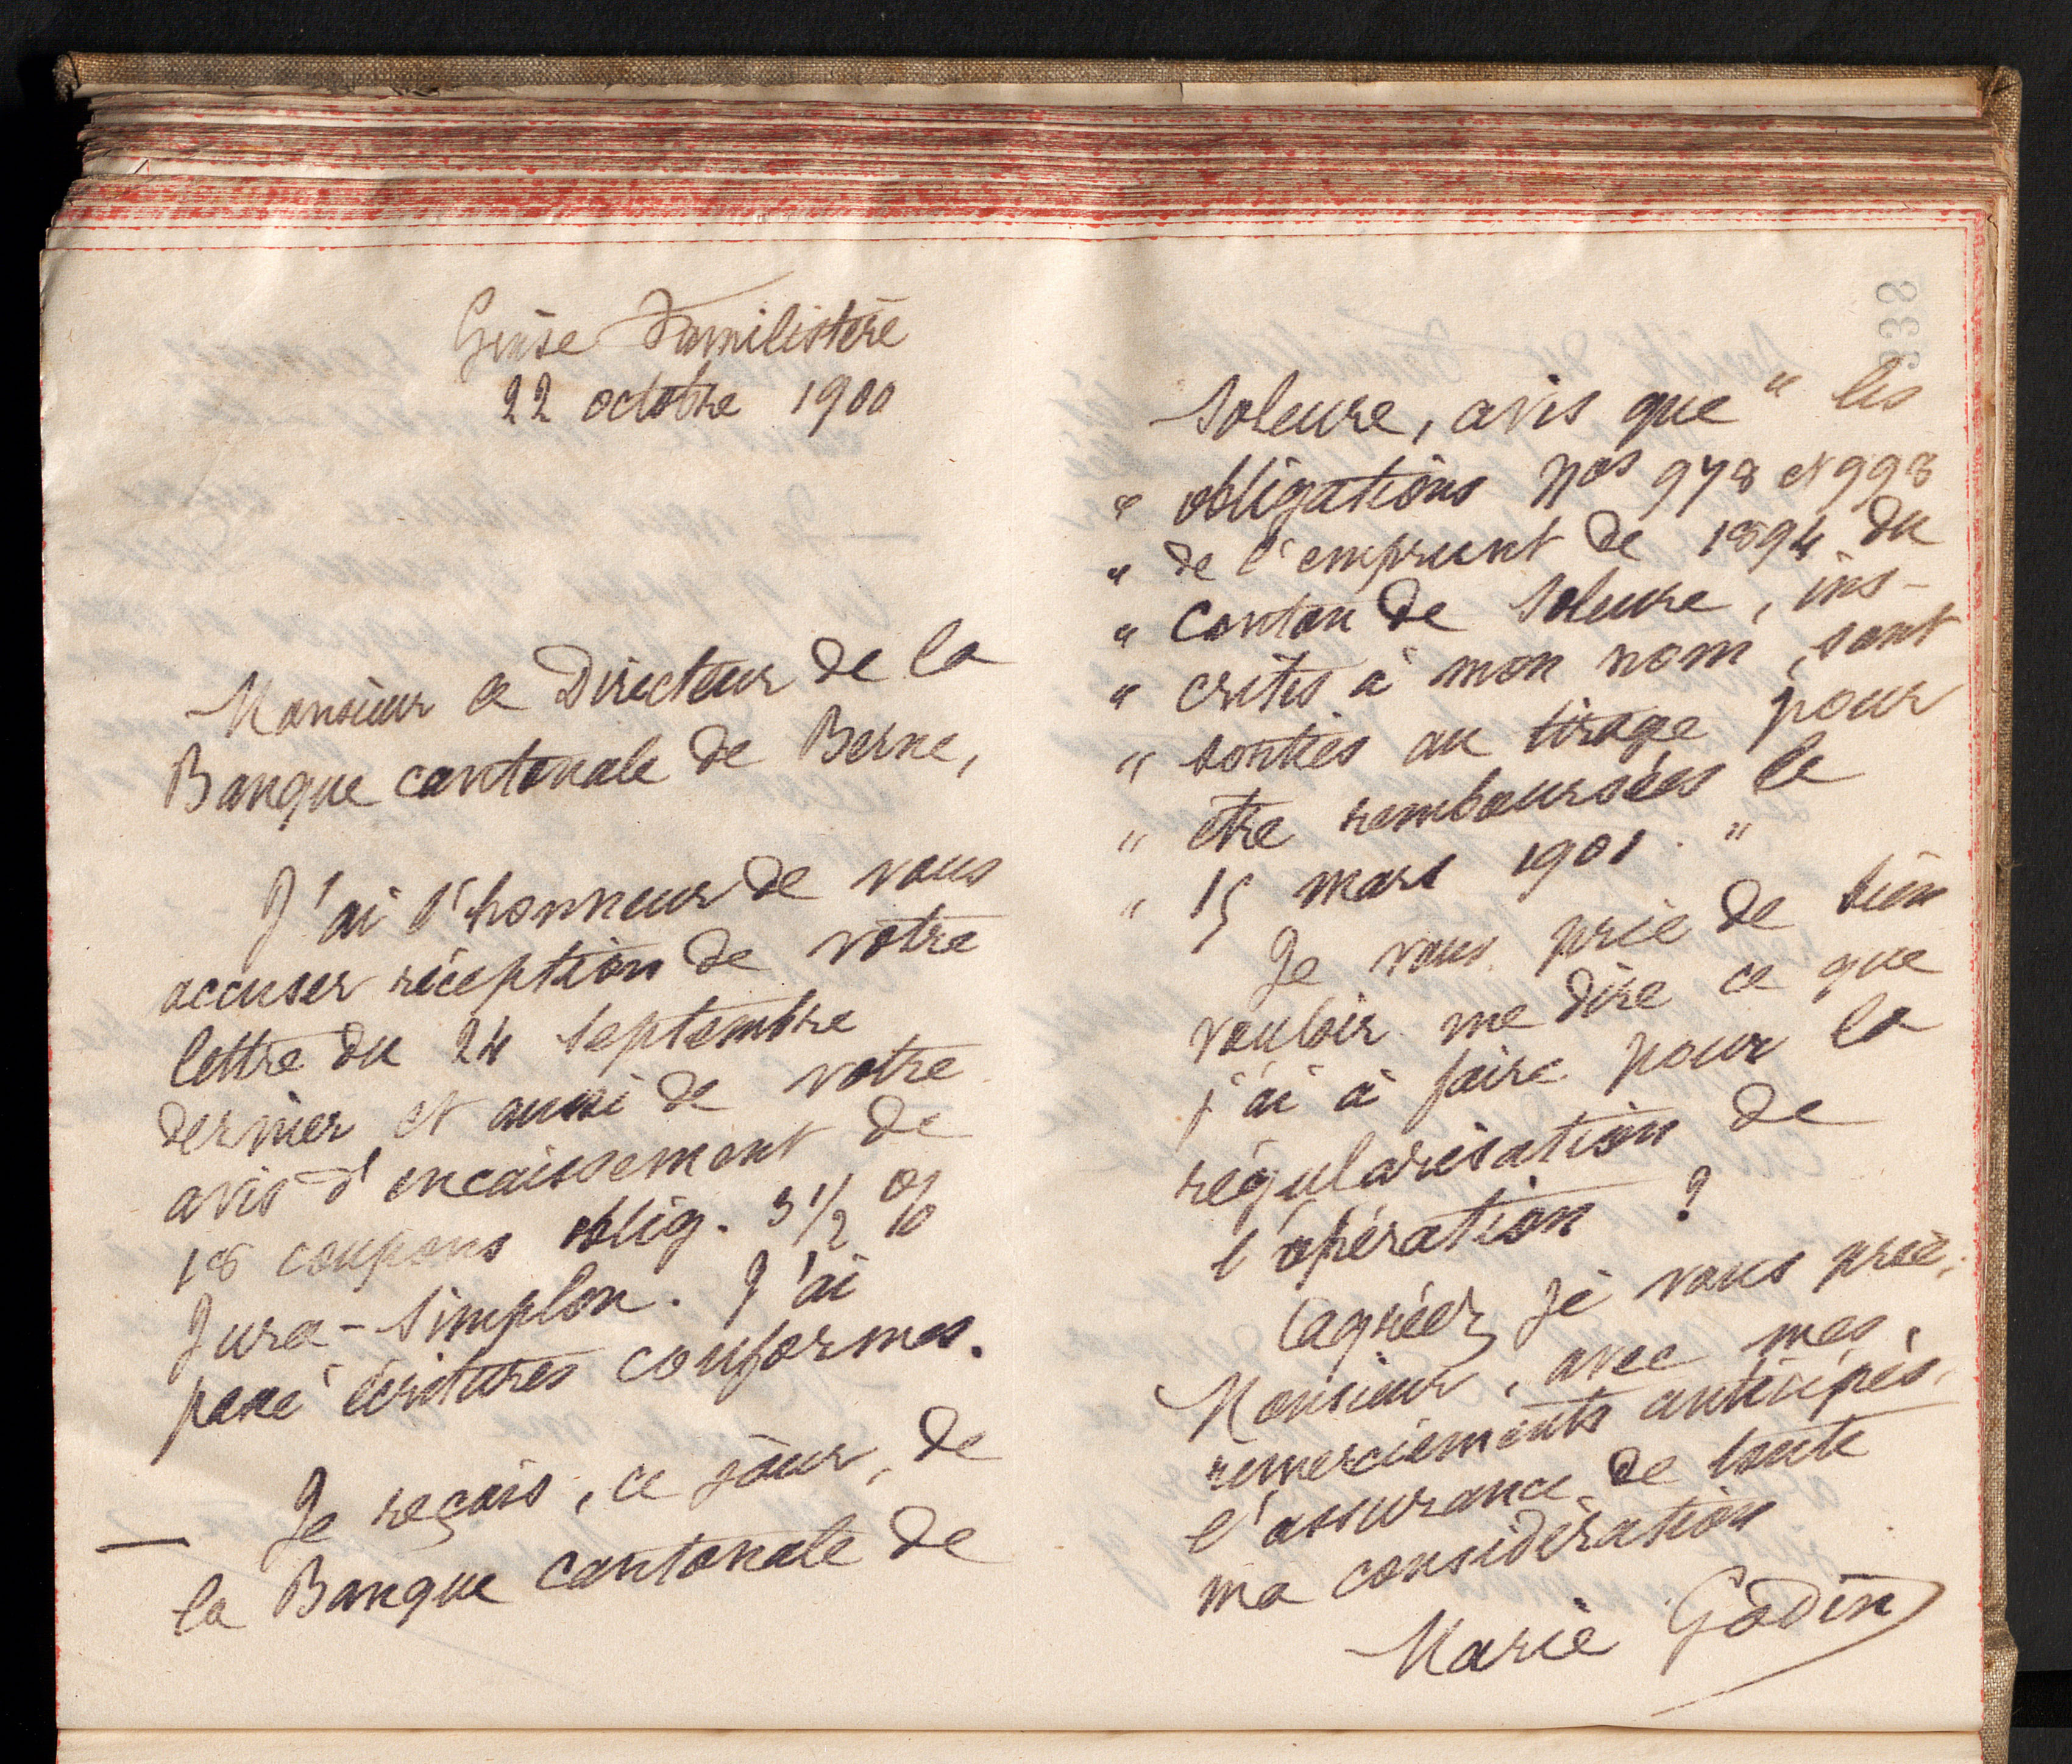 Guise Familistère
22 octobre 1900
Monsieur le Directeur de la
Banque cantonale de Berne,
J'ai l'honneur de vous
accuser réception de votre
lettre du 24 septembre
dernier et aussi de votre
avis d'encaissement de
18 coupons oblig. 3 1/2 %
Jura-Simplon. J'ai
passé écritures conformes.
— Je reçois, ce jour, de
la Banque cantonale de
338
Soleure, avis que " les
" obligations Nos 978 et 998
" de l'emprunt de 1894 du
" Canton de Soleure, ins-
" crites à mon nom, sont
" sorties au tirage pour
" être remboursées le
" 15 mars 1901. "
Je vous prie de bien
vouloir me dire ce que
j'ai à faire pour la
régularisation de
l'opération ?
Agréez, je vous prie,
Monsieur, avec mes
remerciements anticipés,
l'assurance de toute
ma considération
Marie Godin